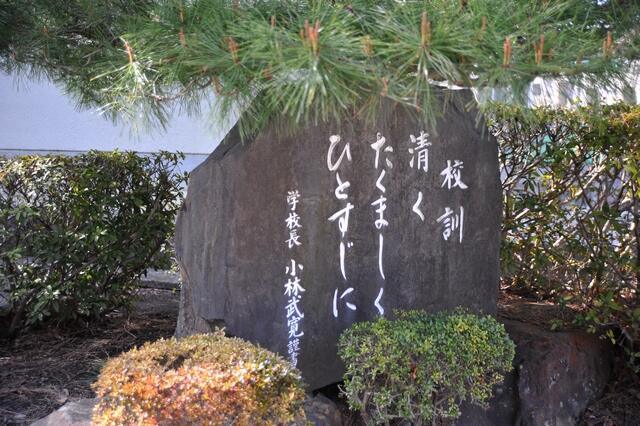 校訓
清く
たくましく
ひとすじに
学校長 小林武寛 謹書